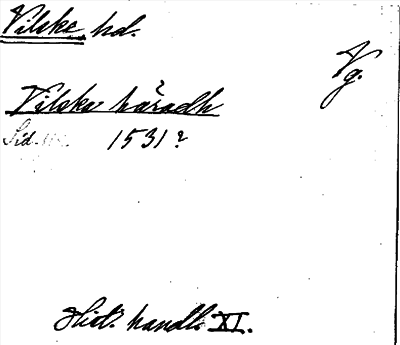 Vilske hd.
Vg.
Vilske häradh
1531?
Hist. handl. XI.